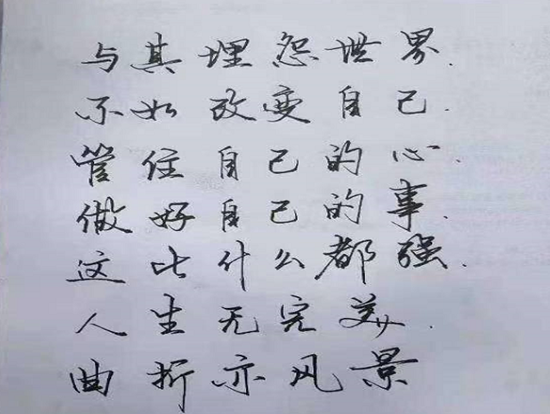 与其埋怨世界.
不如改变自己.
管住自己的心.
做好自己的事.
这比什么都强.
人生无完美.
曲折亦风景